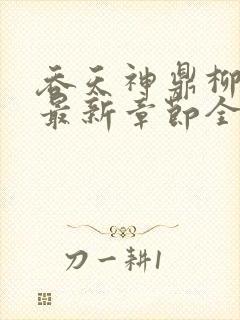 吞天神鼎柳
最新章节全
刀一耕1